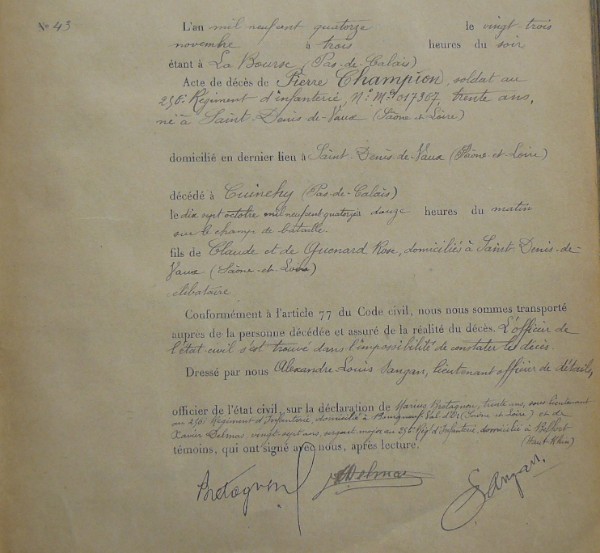 N° 43
L'an mil neuf cent quatorze le vingt trois
novembre à trois heures du soir
étant à La Bourse (Pas-de-Calais)
Acte de décès de Pierre Champion, soldat au
256e Régiment d'infanterie, N° Mle 017367, trente ans,
né à Saint-Denis-de-Vaux (Saône et Loire)
domicilié en dernier lieu à Saint-Denis-de-Vaux (Saône-et-Loire)
décédé à Cuinchy (Pas-de-Calais)
le dix sept octobre mil neuf cent quatorze douze heures du matin
sur le champ de bataille
fils de Claude et de Guenard Rose, domiciliés à Saint Denis-de-
Vaux (Saône-et-Loire)
célibataire
Conformément à l'article 77 du Code civil, nous nous sommes transporté
auprès de la personne décédée et assuré de la réalité du décès. L'officier de
l'état-civil s'est trouvé dans l'impossibilité de constater les décès.
Dressé par nous Alexandre Louis officier de détails,
officier de l'état civil, sur la déclaration de Marius Bretagnon, trente ans, sous lieutenant
au 256e Régiment d'Infanterie, domicilié à Val d'Or (Saône et Loire) et de
Xavier Delmas vingt-sept ans, sergent major au 256e Régt d'Infanterie, domicilié à Belfort
(Haut-Rhin)
témoins, qui ont signé avec nous, après lecture.
Bretagnon Delmas